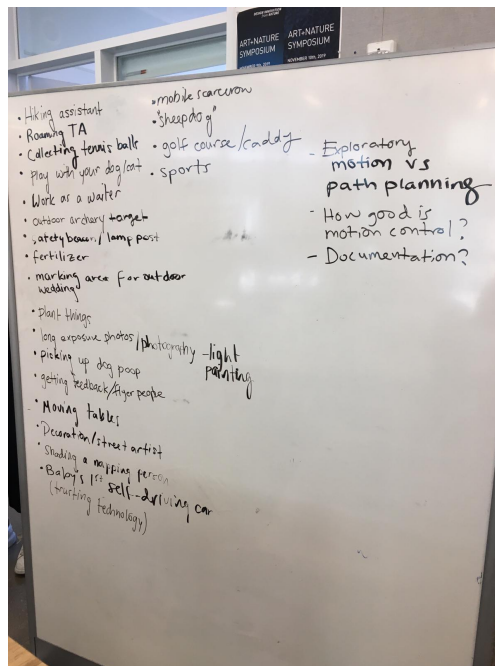 ART+NATURE
SYMPOSIUM
ART+NATURE
SYMPOSIUM
NOVEMBER 10th, 2019
• Hiking assistant
• Roaming TA
• Collecting tennis balls
• play with your dog/cat
• Work as a waiter
• outdoor archery target
• safety beacon / lamp post
• fertilizer
• marking area for outdoor
wedding
• plant things
• long exposure photos/photography - light
painting
• picking up dog poop
• getting feedback/flyer people
• Moving tables
• Decoration/street artist
• Shading a napping person
• Baby's 1st self-driving car
(trusting technology)
• mobile scarecrow
• "sheepdog"
• golf course/caddy
• sports
- Exploratory
motion vs
path planning
- How good is
motion control?
- Documentation?